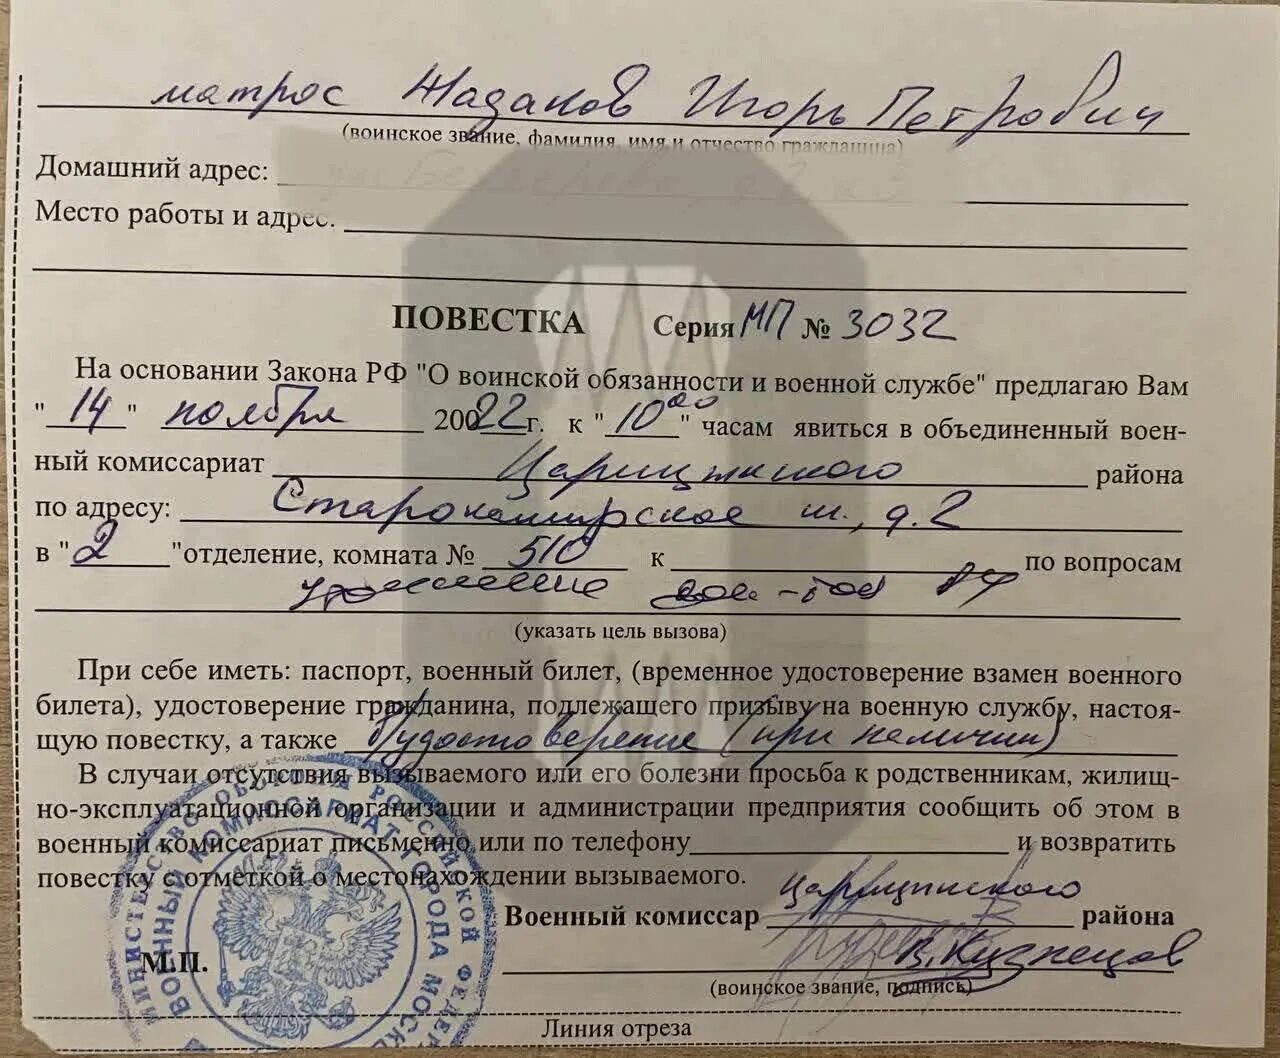 матрос Жадаков Игорь Петрович
(воинское звание, фамилия, имя и отчество гражданина)
Домашний адрес:
Место работы и адрес.
ПОВЕСТКА Серия МП № 3032
На основании Закона РФ "О воинской обязанности и военной службе" предлагаю Вам
"14" ноября 20022г. к "10 00" часам явиться в объединенный воен-
ный комиссариат Царицынского района
по адресу: Старокаширское ш., д.2
в "2"отделение, комната № 510 к по вопросам
РФ
(указать цель вызова)
При себе иметь: паспорт, военный билет, (временное удостоверение взамен военного
билета), удостоверение гражданина, подлежащего призыву на военную службу, настоя-
щую повестку, а также удостоверение (при наличии)
В случаи отсутствия вызываемого или его болезни просьба к родственникам, жилищ-
но-эксплуатационной организации и администрации предприятия сообщить об этом в
военный комиссариат письменно или по телефону и возвратить
повестку с отметкой о местонахождении вызываемого.
Военный комиссар Царицынского района
В. Кузнецов
М.П.
(воинское звание, подпись)
Линия отреза
МИНИСТЕРСТВО ОБОРОНЫ РОССИЙСКОЙ ФЕДЕР
ВОЕННЫЙ КОМИССАРИАТ ГОРОДА МОСК